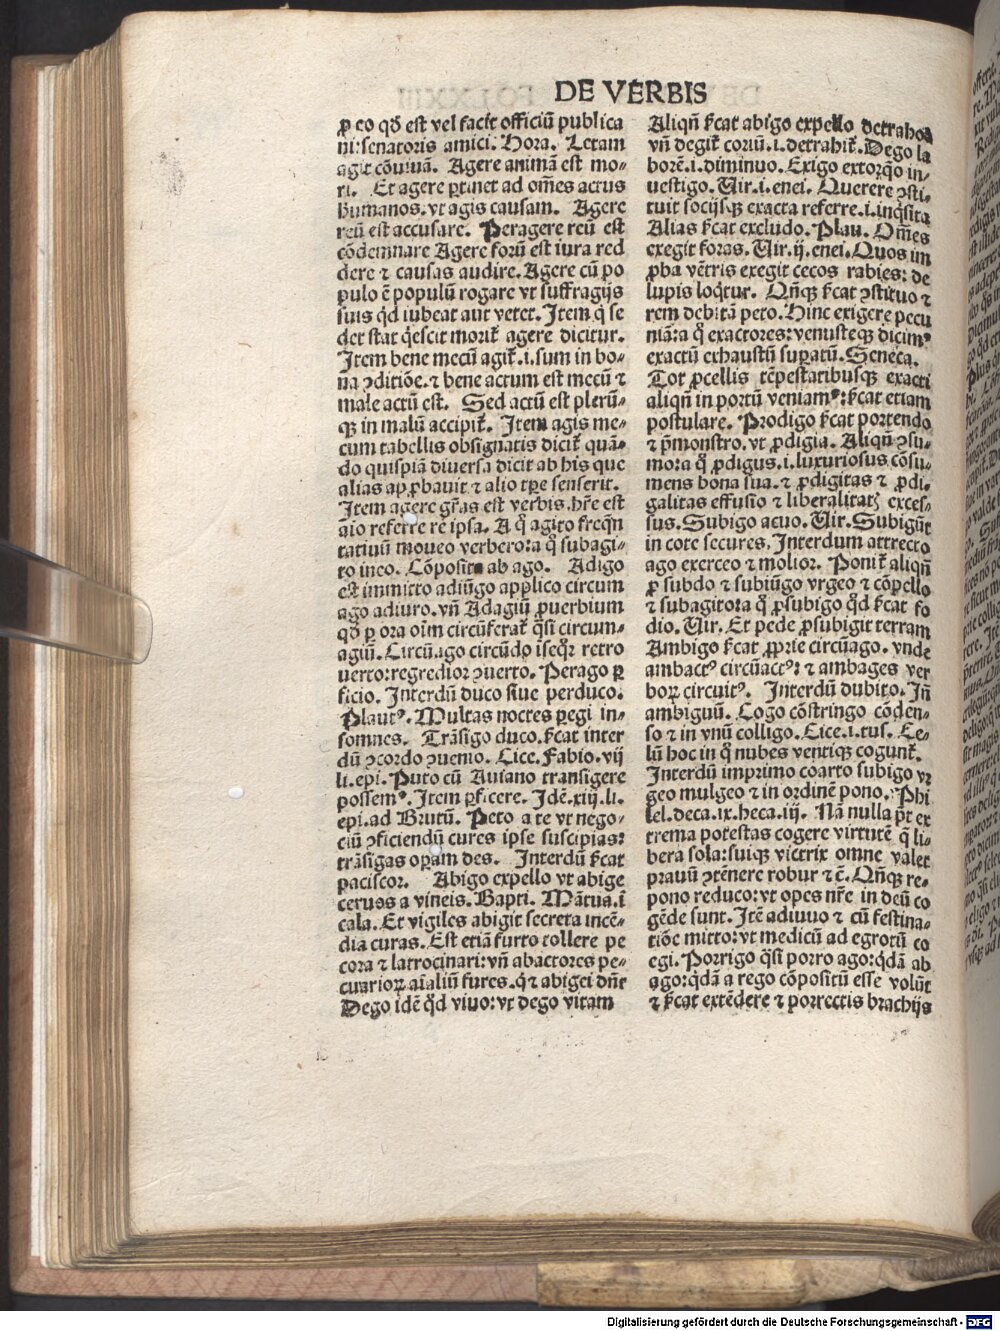 DE VERBIS
ꝓ eo qd̄ est vel facit officiū publica
ni: senatoris amici. Hora. Letam
agit cōuiuā. Agere animā est mo⸗
ri. Et agere ꝑtinet ad om̄es actus
humanos. vt agis causam. Agere
reū est accusare. Peragere reū est
cōdemnare Agere forū est iura red
dere ⁊ causas audire. Agere cū po
pulo ē populū rogare vt suffragijs
suis qd̄ iubeat aut vetet. Item q̄ se
det stat q̄escit morit᷑ agere dicitur.
Item bene mecū agit᷑ .i. sum in bo⸗
na ꝯditiōe. ⁊ bene actum est mecū ⁊
male actū est. Sed actū est plerū⸗
qꝫ in malū accipit᷑. Item agis me⸗
cum tabellis obsignatis dicit᷑ quā⸗
do quispiā diuersa dicit ab his que
alias apꝓbauit ⁊ alio tꝑe senserit.
Item agere gr̄as est verbis. hr̄e est
aīo referre re ipsa. A q̊ agito freq̄n
tatiuū moueo verbero: a q̊ subagi⸗
to ineo. Cōposita ab ago. Adigo
est immitto adiūgo applico circum
ago adiuro. vn̄ Adagiū ꝓuerbium
qd̄ ꝑ ora oīm circūferat᷑ q̄si circum⸗
agiū. Circūago circūdo iseq̊ꝛ retro
uerto: regredior ꝯuerto. Perago ꝑ
ficio. Interdū duco siue perduco.
Plautꝰ. Multas noctes ꝑegi in⸗
somnes. Trāsigo duco. ẜcat inter
dū ꝯcordo ꝯuenio. Cice. Fabio. vij
li. epi. Puto cū Auiano transigere
possemꝰ. Item ꝑficere. Idē. xiij. li.
epi. ad Brutū. Peto a te vt nego⸗
ciū ꝯficiendū cures ipse suscipias:
trāsigas oꝑam des. Interdū ẜcat
paciscor. Abigo expello vt abige
ceruos a vineis. Bapti. Mātua. ī
cala. Et vigiles abigit secreta incē⸗
dia curas. Est etiā furto tollere pe
cora ⁊ latrocinari: vn̄ abactores pe⸗
cuarioꝝ aīaliū fures. q̇ ⁊ abigei dn̄r
Dego idē qd̄ viuo: vt dego vitam
Aliqn̄ ẜcat abigo expello detraho
vn̄ degit᷑ coriū .i. detrahit᷑. Dego la
borē .i. diminuo. Exigo extorq̄o in⸗
uestigo. Uir. i. enei. Querere ꝯsti⸗
tuit socijsqꝫ exacta referre .i. inq̇sita
Alias ẜcat excludo. Plau. Om̄es
exegit foras. Uir. ij. enei. Quos im
ꝓba vētris exegit cecos rabies: de
lupis loq̇tur. Qn̄qꝫ ẜcat ꝯstituo ⁊
rem debitā peto. Hinc exigere pecu
niā: a q̊ exactores: venusteqꝫ dicimꝰ
exactū exhaustū suꝑatū. Seneca.
Tot ꝓcellis tēpestatibusqꝫ exacti
aliqn̄ in portū veniamꝰ: ẜcat etiam
postulare. Prodigo ẜcat portendo
⁊ p̄monstro. vt ꝓdigia. Aliqn̄ ꝯsu⸗
mo: a q̊ ꝓdigus .i. luxuriosus cōsu⸗
mens bona sua. ⁊ ꝓdigitas ⁊ ꝓdi⸗
galitas effusio ⁊ liberalitatꝭ exces⸗
sus. Subigo acuo. Uir. Subigūt
in cote secures. Interdum attrecto
ago exerceo ⁊ molior. Ponit᷑ aliqn̄
ꝓ subdo ⁊ subiūgo vrgeo ⁊ cōpello
⁊ subagito: a q̊ ꝓsubigo qd̄ ẜcat fo
dio. Uir. Et pede ꝓsubigit terram
Ambigo ẜcat ꝓprie circūago. vnde
ambactꝰ circūactꝰ: ⁊ ambages ver
boꝝ circuitꝰ. Interdū dubito. In̄
ambiguū. Cogo cōstringo cōden⸗
so ⁊ in vnū colligo. Cice. i. tus. Ce⸗
lū hoc in q̊ nubes ventiqꝫ cogunt᷑.
Interdū imprimo coarto subigo vr
geo mulgeo ⁊ in ordinē pono. Phi
lel. deca. ix. heca. iij. Nā nulla p̄t ex
trema potestas cogere virtutē q̄ li⸗
bera sola: suiqꝫ victrix omne valet
prauū ꝯtēnere robur ⁊ c̄. Qn̄qꝫ re⸗
pono reduco: vt opes nr̄e in deū co
gēde sunt. Itē adiuuo ⁊ cū festina⸗
tiōe mitto: vt medicū ad egrotū co
egi. Porrigo q̄si porro ago: q̇dā ab
ago: q̇dā a rego cōpositū esse volūt
⁊ ẜcat extēdere ⁊ porrectis brachijs
Digitalisierung gefördert durch die Deutsche Forschungsgemeinschaft - DFG